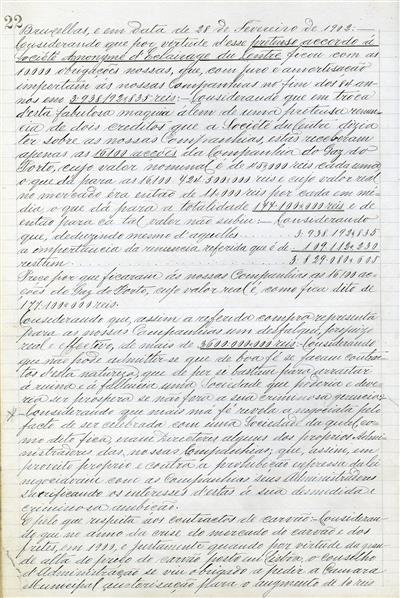 22
Bruxellas, e em data de 28 de Fevereiro de 1902.
Considerando que por virtude d'esse pretenso accordo á
Société Anonyme d'Eclairage du Centre ficou com as
10000 obrigações nossas, que, com juro e amortisação
importam ás nossas Companhias no fim dos 84 an-
nos em 3.938:192:835 reis: Considerando que em troca
d'esta fabulosa maquia alem de uma pretensa renun-
cia de dois creditos que a Société du Centre dizia
ter sobre as nossas Companhias, estas receberam
apenas as 16100 acções da Companhia do Gaz do
Porto, cujo valor nominal é de reis cada uma
o que dá para as 16.100 reis e cujo valor real
no mercado era então de 11:000 reis por cada em mé-
dia, o que dá para a totalidade 177:100:000 reis e de
então para cá tal valor não subiu: Considerando
que, deduzindo mesmo d'aquelles 3.938:192:835
a importancia da renuncia referida que é de 109:112:230
restam 3.829:080:605
Preço por que ficaram ás nossas Companhias as 16100 ac-
ções do Gaz do Porto, cujo valor real é como fica dito de
177:100:000 reis.
Considerando que, assim a referida compra representa
para as nossas Companhias um desfalque, prejuizo
real e effectivo, de mais de 3600:000:000 reis: Considerando
que não póde admittir-se que de boa fé se façam contra-
tos d'esta natureza, que de per se bastam para arrastar
á ruina e á fallencia uma Sociedade que poderia e deve-
ria ser prospera se não fora a sua criminosa gerencia:
Considerando que mais má fé revela a proposito pelo
facto de ser celebrada com uma Sociedade da qual, co-
mo dito fica, eram Directores alguns dos proprios Admi-
nistradores das nossas Companhias; que, assim, em
proveito proprio e contra a prohibição expressa da lei
negociavam com as Companhias suas Administradas
sacrificando os interesses d'estas á sua desmedida e
criminosa ambição.
E pelo que respeita aos contractos de carvão: Consideran-
do que no anno da crise do mercado de carvão e dos
fretes, em 1900, e justamente quando por virtude da gran-
de alta do preço do carvão posto em Lisboa, o conselho
d'Administração se viu obrigado a pedir á Camara
Municipal auctorisação para o augmento de 10 reis